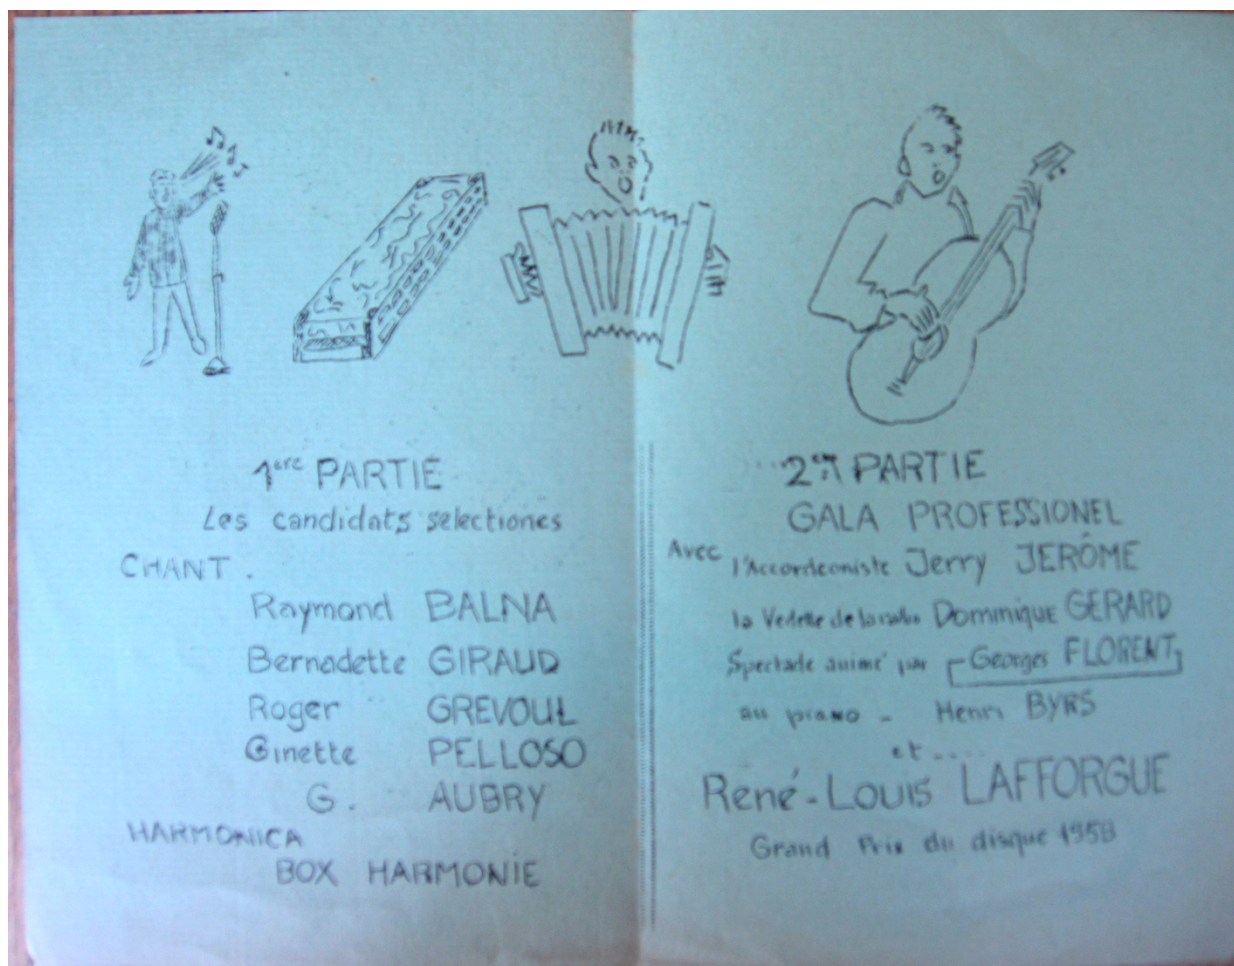 1ere PARTIE
Les candidats selectiones
CHANT.
Raymond BALNA
Bernadette GIRAUD
Roger GREVOUL
Ginette PELLOSO
G. AUBRY
HARMONICA
BOX HARMONIE
2em PARTIE
GALA PROFESSIONEL
Avec l'Accordeoniste Jerry JERÔME
la Vedette de la radio Dominique GERARD
Spectacle animé par Georges FLORENT
au piano - Henri BYRS
et....
René-Louis LAFFORGUE
Grand Prix du disque 1958